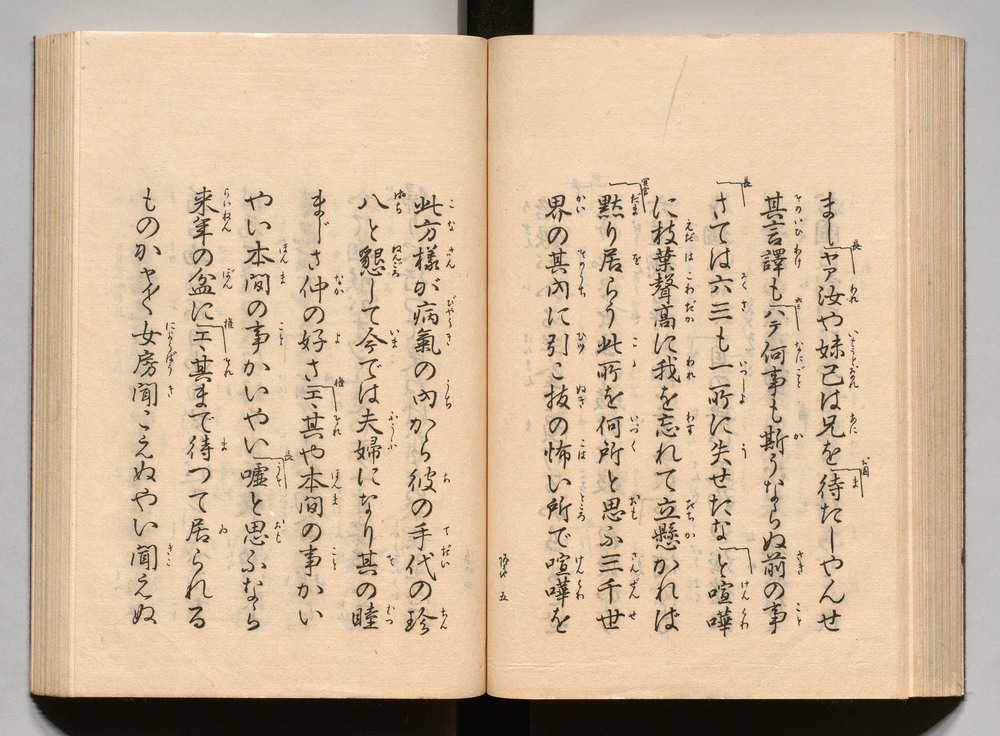 ましヤア汝や妹己は兄を待たしやんせ
其言譯もハテ何事も斯うならぬ前の事
さては六三も一所に失せたなと喧嘩
に枝葉聲高に我を忘れて立懸かれば
黙り居らう此所を何所と思ふ三千世
界の其内に引こ抜の怖い所で喧嘩を
五
此方様が病氣の内から彼の手代の珍
八と懇して今では夫婦になり其の睦
まじさ仲の好さエヽ其や本間の事かい
やい本間の事かいやい嘘と思ふなら
来年の盆にエヽ其まで待つて居られる
ものかヤイ女房聞こえぬやい聞えぬ